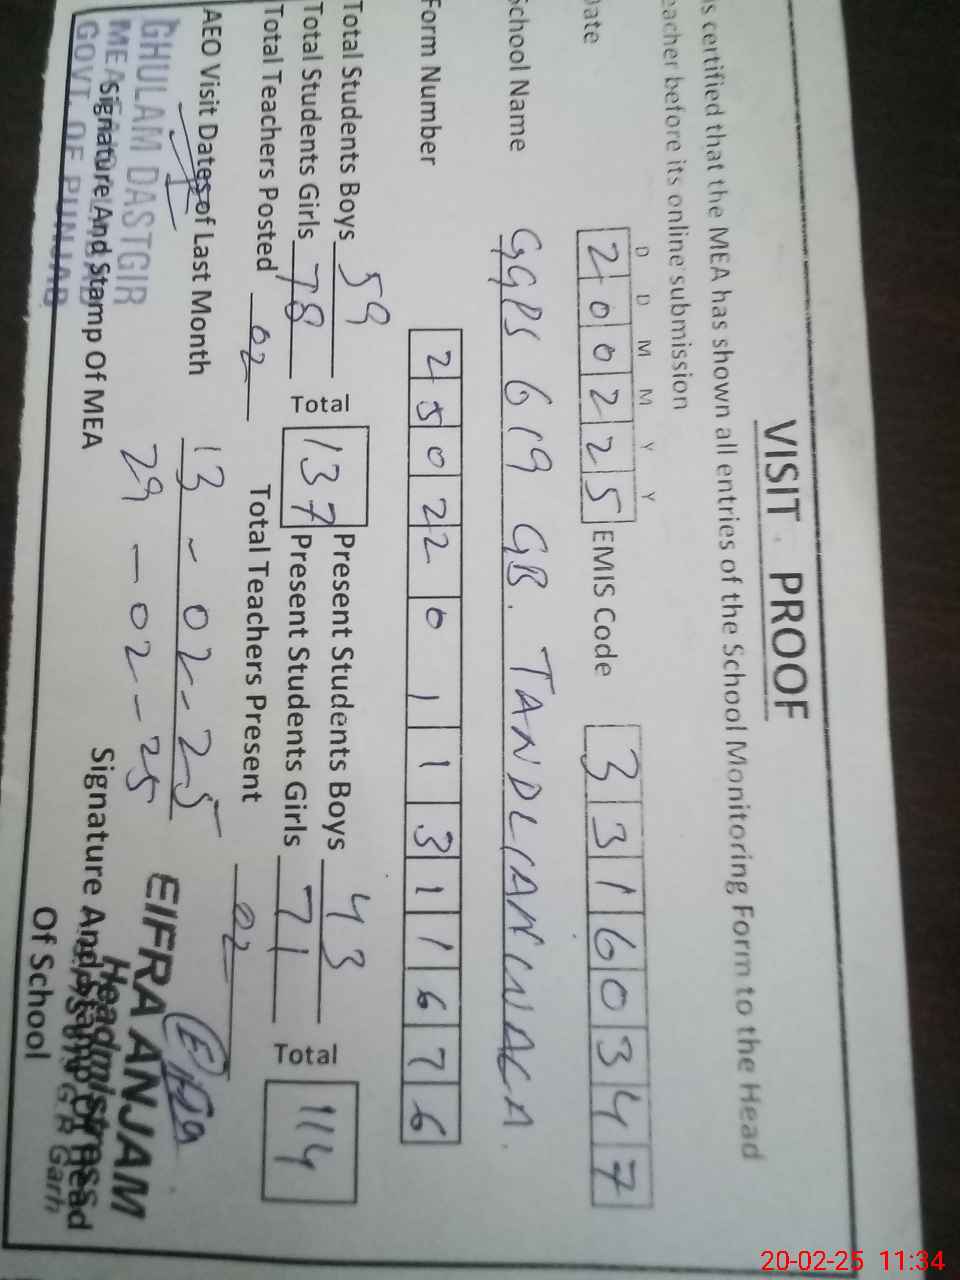 VISIT PROOF
is certified that the MEA has shown all entries of the School Monitoring Form to the Head
eacher before its online submission
D D M M Y Y
Date 200225 EMIS Code 33160347
School Name GGPS 619 GB. TANDLIANWALA.
Form Number 25022011311676
Total Students Boys 59 Total 137 Present Students Boys 43 Total 114
Total Students Girls 78 Present Students Girls 71
Total Teachers Posted 02 Total Teachers Present 02
AEO Visit Dates of Last Month 13-02-25
29-02-25
GHULAM DASTGIR
MEA
GOVT. OF PUNJAB
Signature And Stamp Of MEA
EIFRA ANJAM
Headmistress
Signature And Stamp Of Head
Of School
20-02-25 11:34